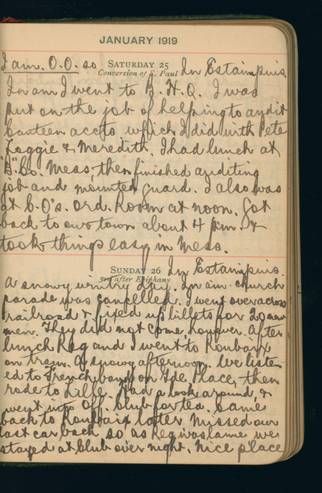 JANUARY 1919
I am O.O. so SATURDAY 25 In Estaimpuis.
Conversion of S. Paul
In am I went to B.H.Q. I was
put on the job of helping to audit
canteen accts which I did with Pete
Laggie & Meredith. I had lunch at
"B" Co. Mess, then finished auditing
job and mounted guard. I also was
at C.O's. Ord. Room at noon. Got
back to our town about 4 p.m. &
took things easy in Mess.
SUNDAY 26 In Estaimpuis.
3rd after Epiphany
A snowy wintry day. In am church
parade was cancelled. I went over across
railroad & fixed up billets for 20
men. They did not come however. After
lunch Reg and I went to Roubaix
on tram. A snowy afternoon. We listen-
ed to French band on Gde. Place, then
rode to Lille. Had a look around, &
went into Off. Club for tea. Came
back to Roubaix later. Missed our
last car back so as Reg was lame we
stayed at club over night. Nice place